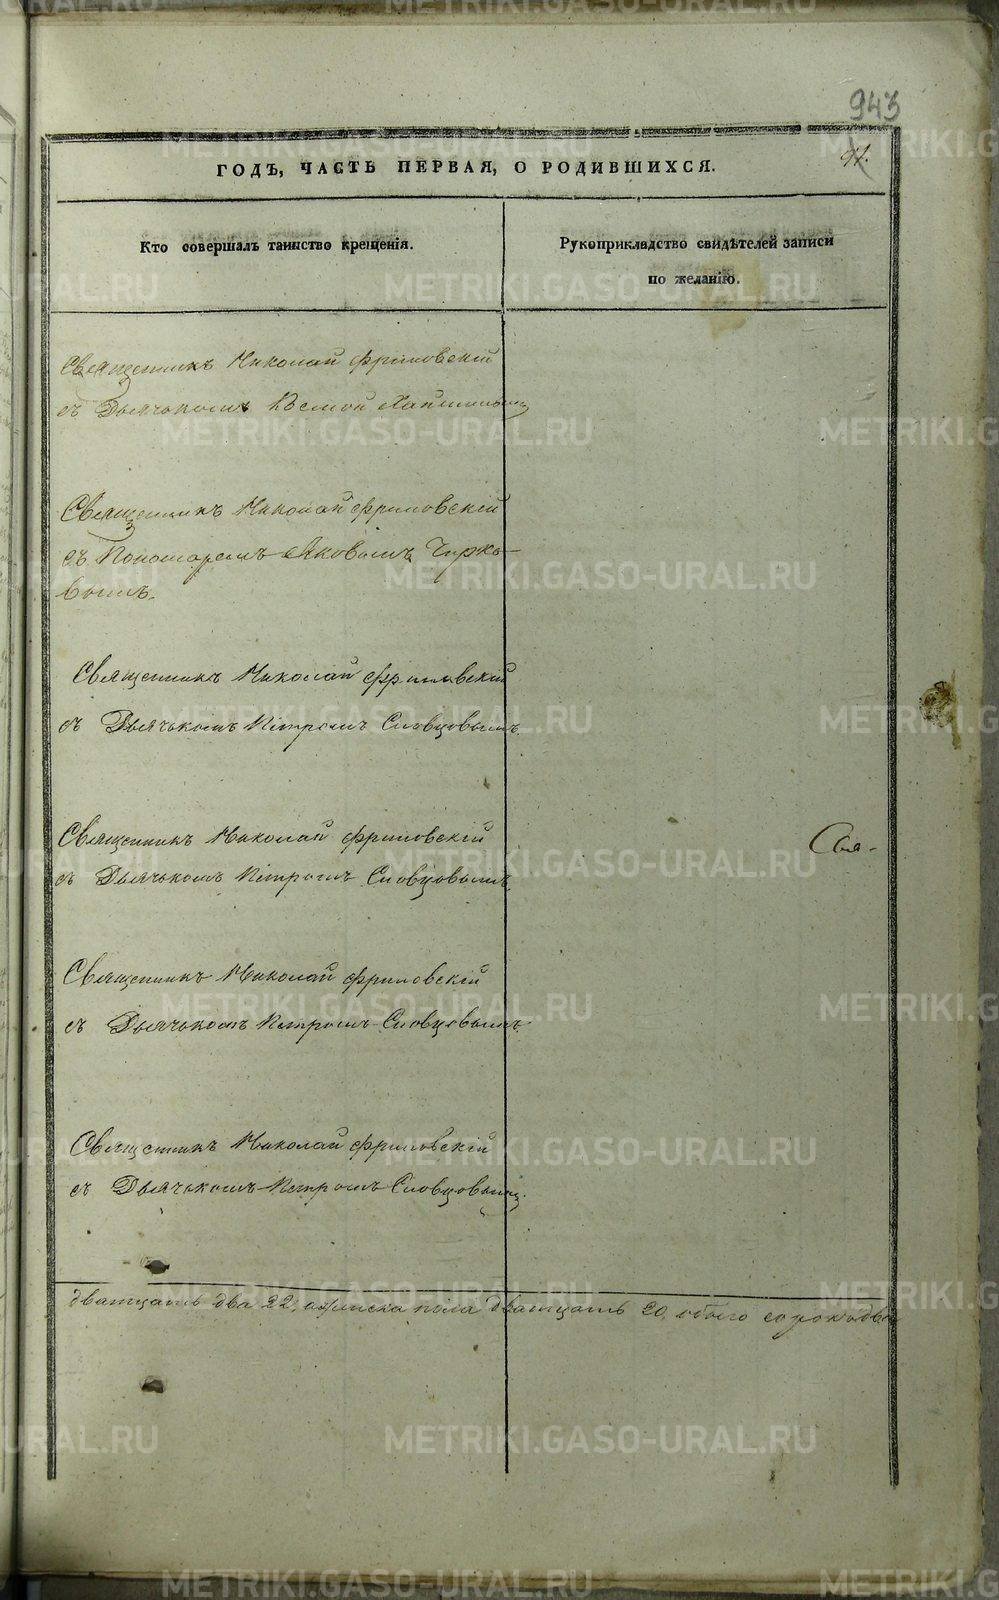 943
97.
ГОДЪ, ЧАСТЬ ПЕРВАЯ, О РОДИВШИХСЯ.
Кто совершалъ таинство крещенія.
Рукоприкладство свидѣтелей записи
по желанію.
Священникъ Николай Фриловскій
съ Дьячькомъ Космой
Священникъ Николай Фриловскій
съ Пономаремъ Яковомъ Чирко-
вымъ.
Священникъ Николай Фриловскій
съ Дьячькомъ Петромъ Словцовымъ
Священникъ Николай Фриловскій
съ Дьячькомъ Петромъ Словцовымъ
Свя-
Священникъ Николай Фриловскій
съ Дьячькомъ Петромъ Словцовымъ
Священникъ Николай Фриловскій
съ Дьячькомъ Петромъ Словцовымъ.
дватцать два 22, женска пола дватцать 20, обоего сорокъ два
METRIKI.GASO-URAL.RU